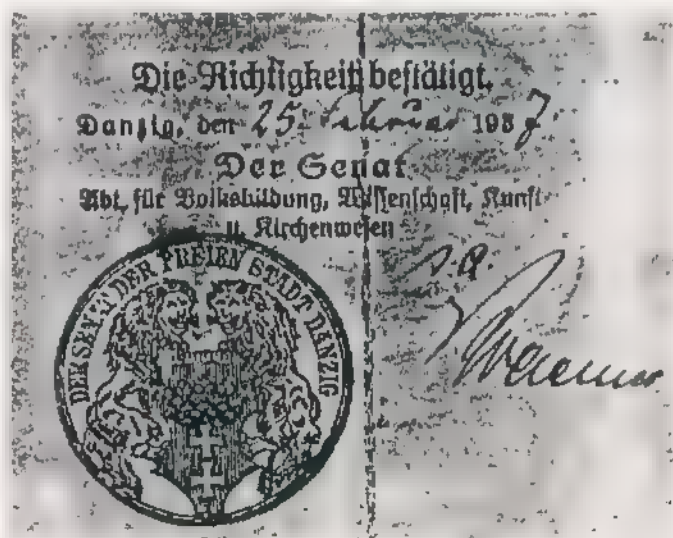 Die Richtigkeit bestätigt.
Danzig, den 25. Februar 1937
Der Senat
Abt. für Volksbildung, Wissenschaft, Kunst
u. Kirchenwesen
DER SENAT DER FREIEN STADT DANZIG